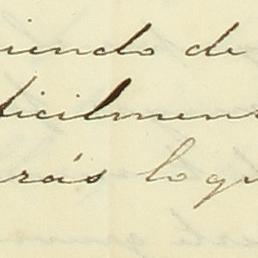 iendo de
ficilmen
rás lo qu